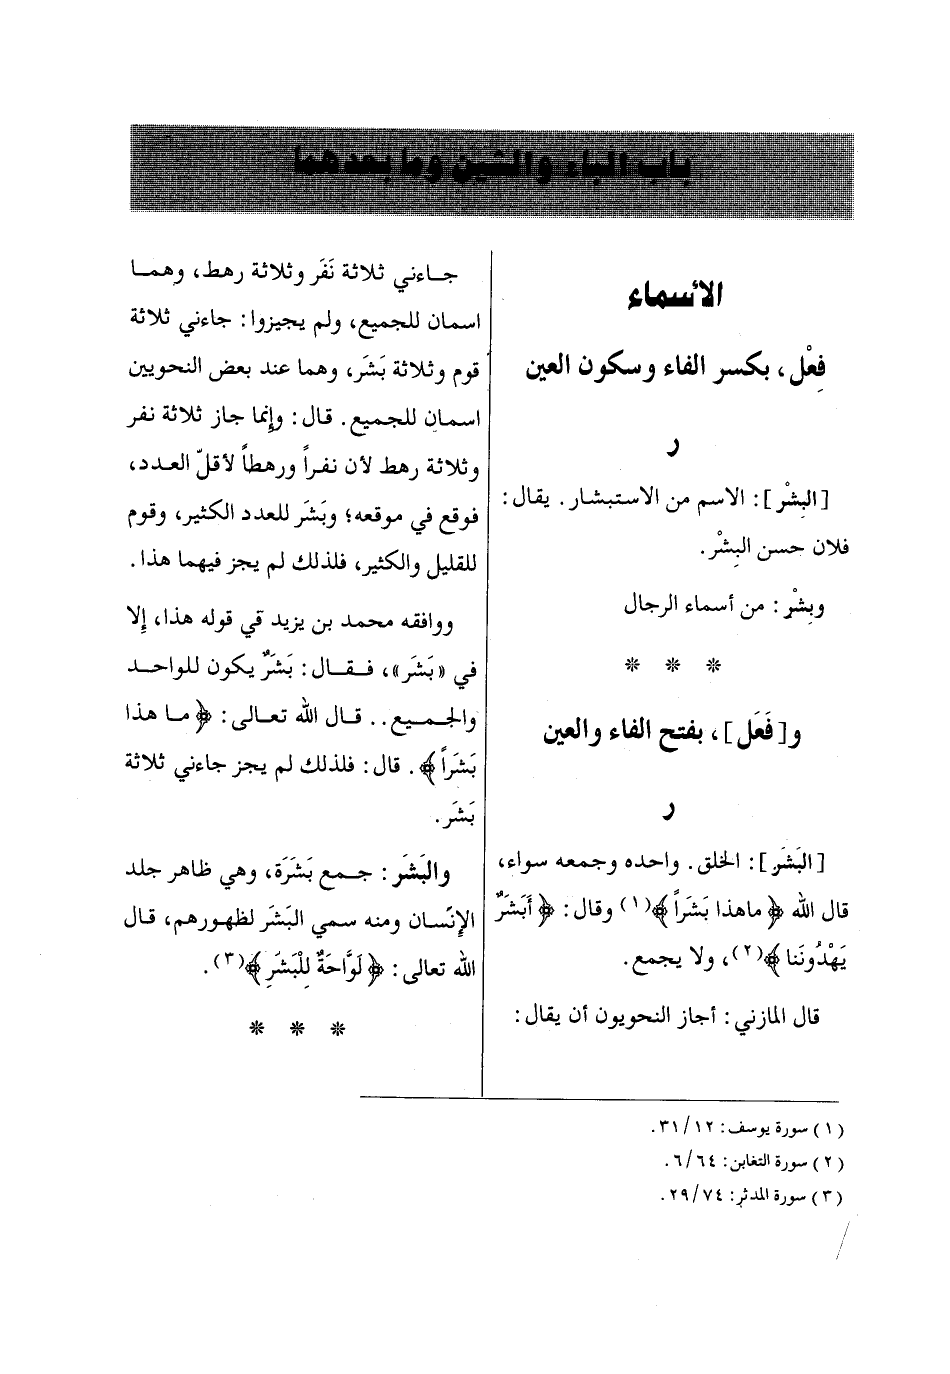 باب الباء والشين وما بعدهما
الأسماء
فِعْل، بكسر الفاء وسكون العين
ر
[البِشْر]: الاسم من الاستبشار. يقال:
فلان حسن البِشْر.
وبِشْر: من أسماء الرجال
* * *
و[فَعَل]، بفتح الفاء والعين
ر
[البَشَر]: الخلق. واحده وجمعه سواء،
قال الله ﴿ ماهذا بَشَراً ﴾(١) وقال: ﴿ أَبَشَرٌ
يَهْدُونَنا ﴾(٢)، ولا يجمع.
قال المازني: أجاز النحويون أن يقال:
جاءني ثلاثة نَفَر وثلاثة رهط، وهما
اسمان للجميع، ولم يجيزوا: جاءني ثلاثة
قوم وثلاثة بَشَر، وهما عند بعض النحويين
اسمان للجميع. قال: وإنما جاز ثلاثة نفر
وثلاثة رهط لأن نفراً ورهطاً لأقلّ العدد،
فوقع في موقعه؛ وبَشَر للعدد الكثير، وقوم
للقليل والكثير، فلذلك لم يجز فيهما هذا.
ووافقه محمد بن يزيد قي قوله هذا، إلا
في «بَشَر»، فقال: بَشَرٌ يكون للواحد
والجميع.. قال الله تعالى: ﴿ ما هذا
بَشَراً ﴾. قال: فلذلك لم يجز جاءني ثلاثة
بَشَر.
والبَشَر: جمع بَشَرَة، وهي ظاهر جلد
الإنسان ومنه سمي البَشَر لظهورهم، قال
الله تعالى: ﴿ لَوَّاحَةٌ لِلْبَشَرِ ﴾(٣).
* * *
(١) سورة يوسف: ٣١/١٢.
(٢) سورة التغابن: ٦/٦٤.
(٣) سورة المدثر: ٢٩/٧٤.